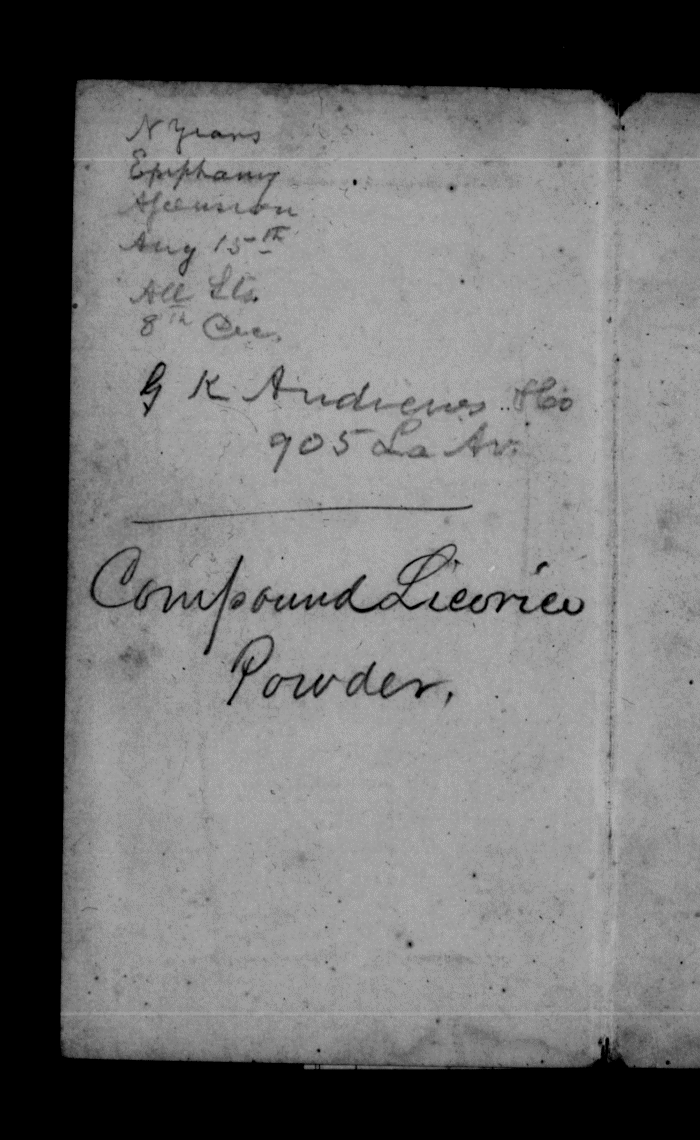 N Years
Epiphany
Ascension
Aug 15th
All Sts.
8th Dec.
G K Andrews
905 La Av.
Compound Licorice
Powder.